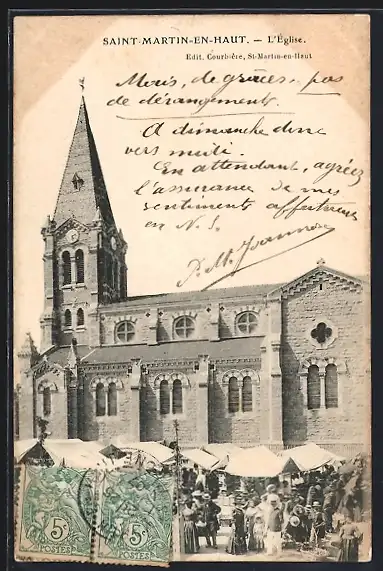 SAINT-MARTIN-EN-HAUT. — L'Église.
Edit. Courbière, St-Martin-en-Haut
Mais, de grâces, pas
de dérangements.
A dimanche donc
vers midi.
En attendant, agréez
l'assurance de mes
sentiments affectueux
en N. S.
5c 5c
POSTES POSTES